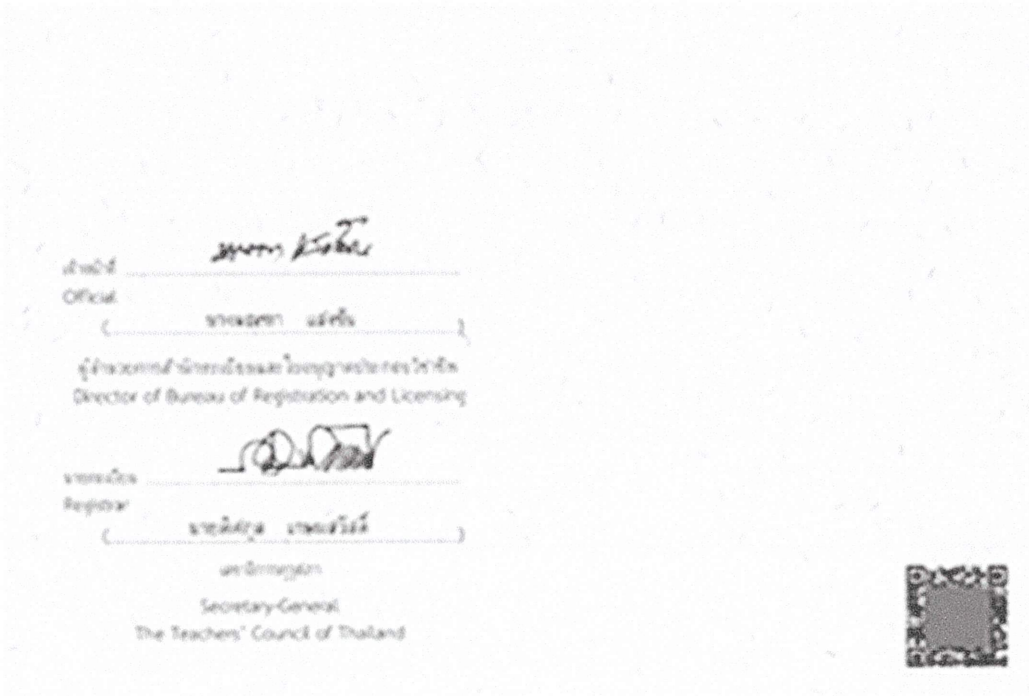 เจ้าหน้าที่
Official
( )
ผู้อำนวยการสำนักทะเบียนและใบอนุญาตประกอบวิชาชีพ
Director of Bureau of Registration and Licensing
นายทะเบียน
Registrar
( นายดิศกุล เกษมสวัสดิ์ )
เลขาธิการคุรุสภา
Secretary-General
The Teachers' Council of Thailand